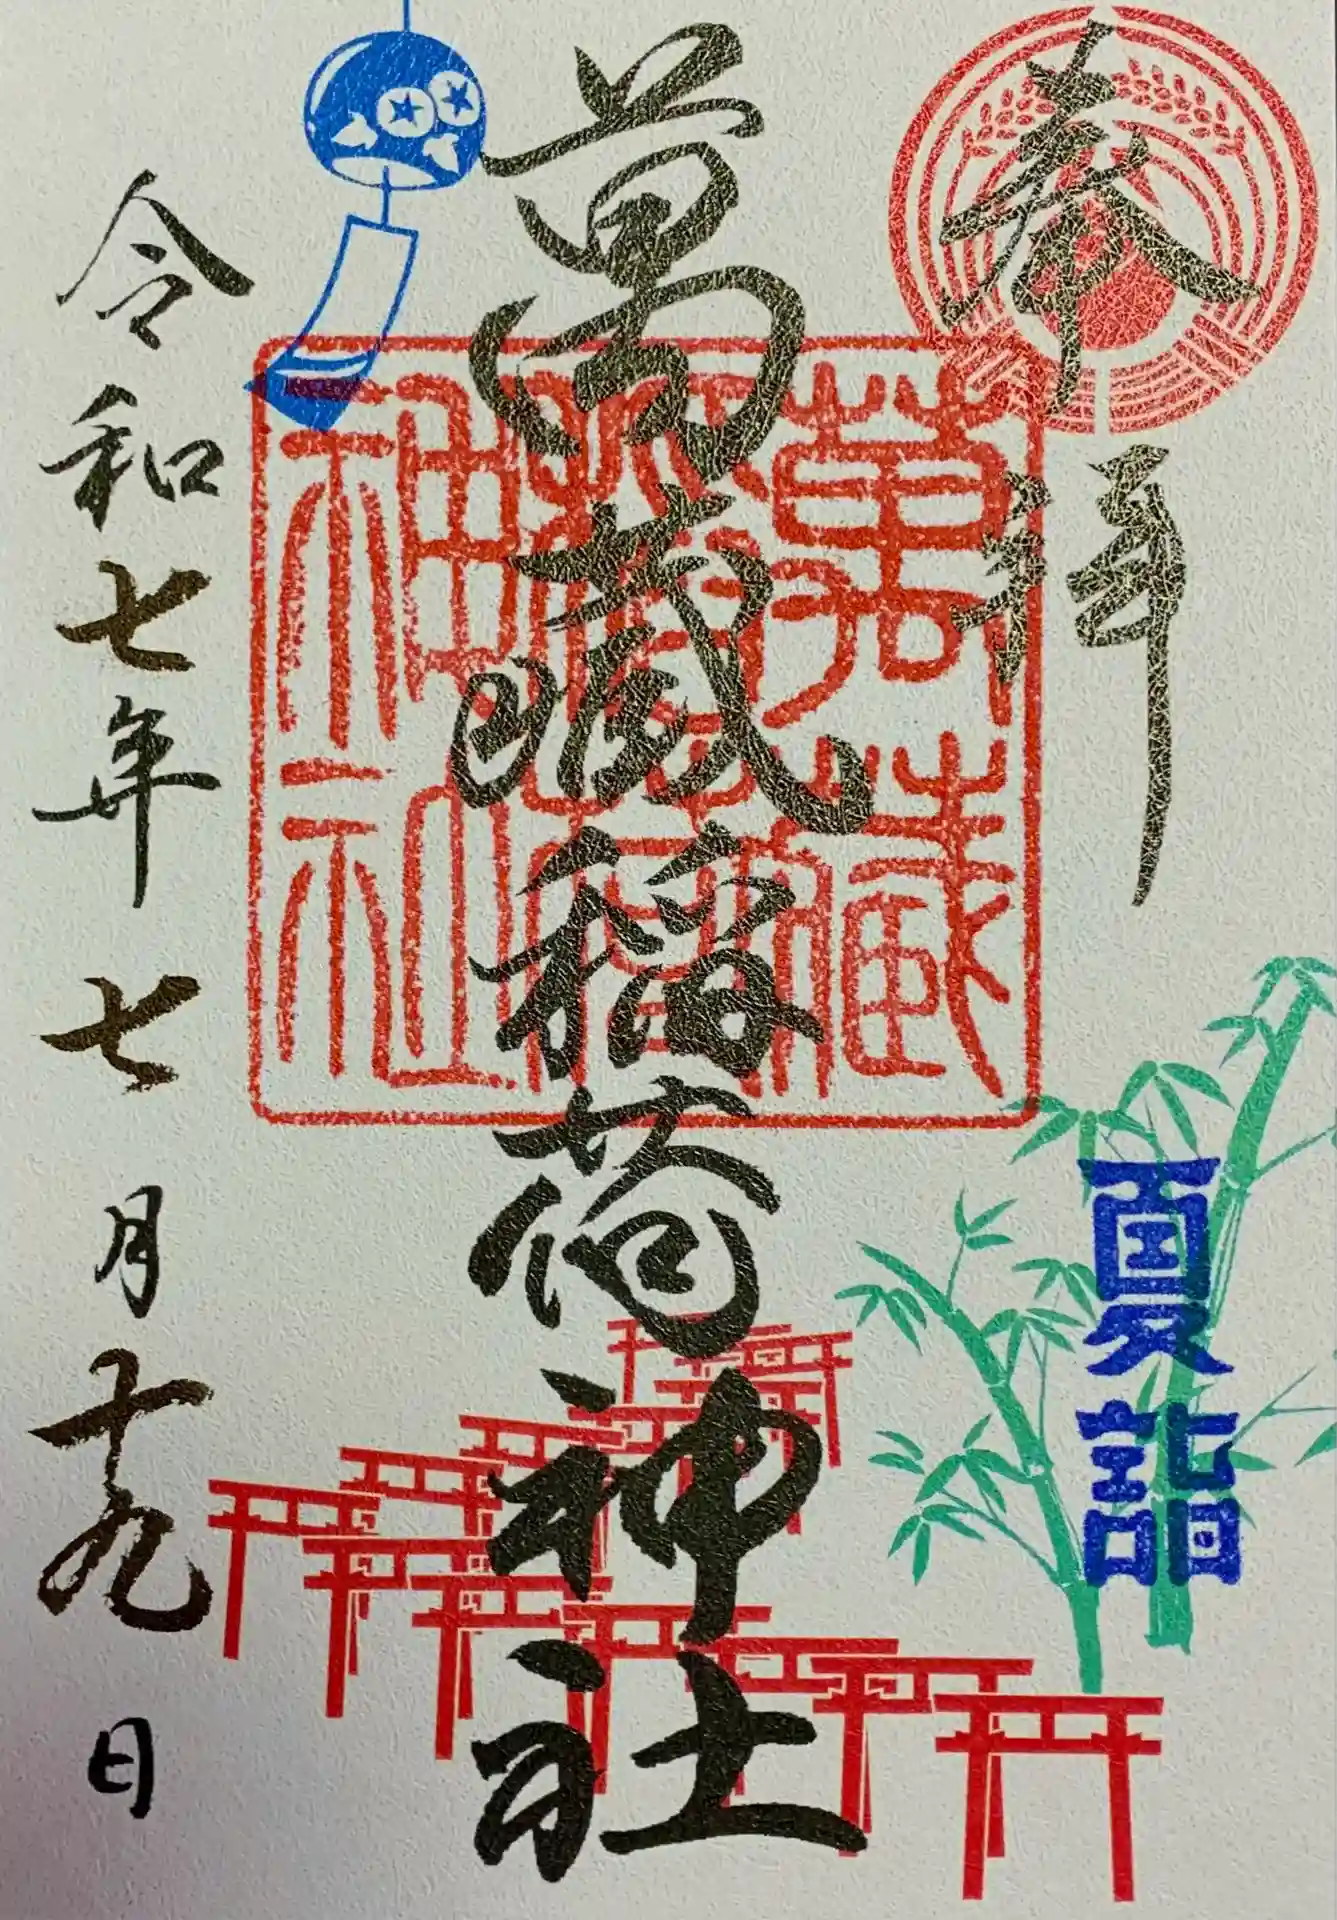 奉拝
夏詣
萬蔵稲荷神社
萬蔵稲荷神社
令和七年七月十九日